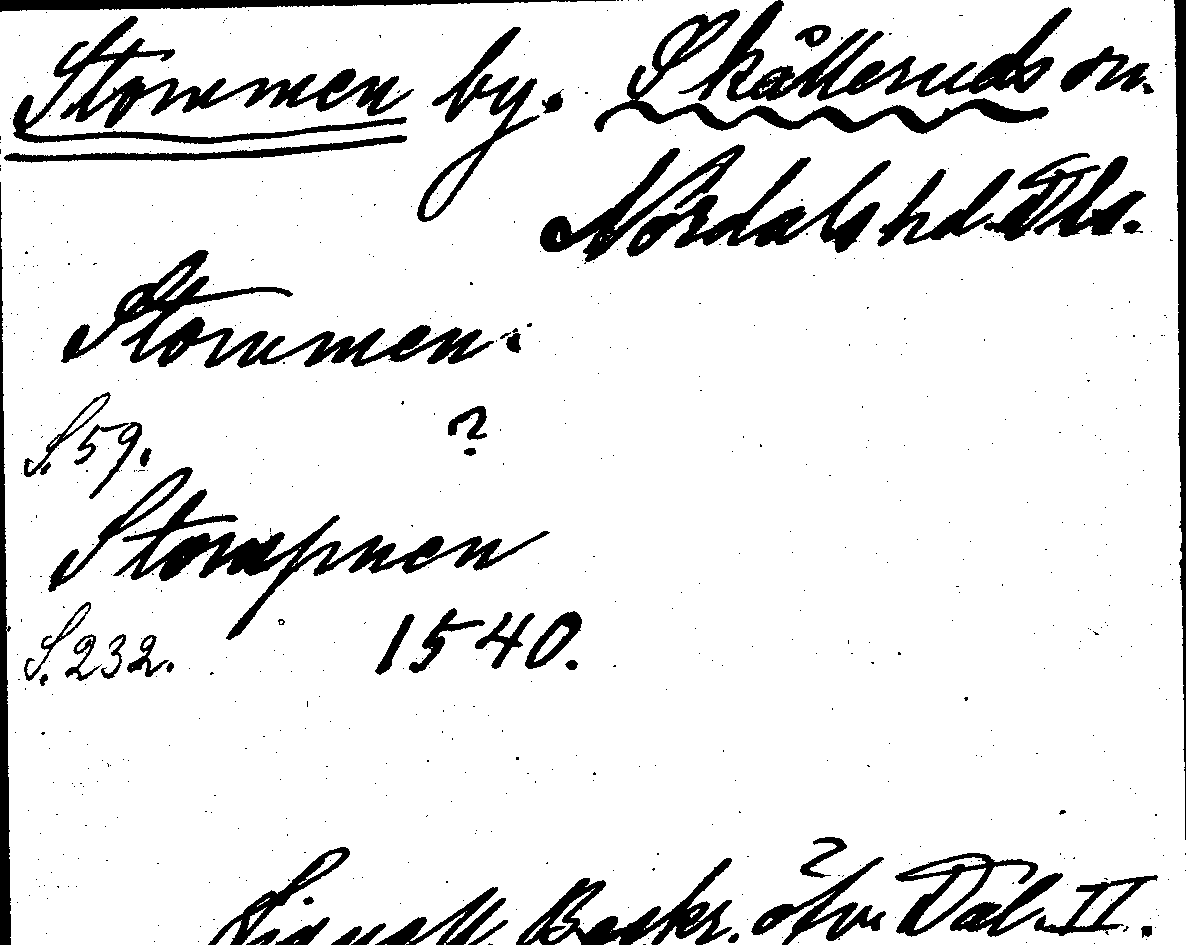 Stommen by. Skålleruds sn.
Nordals hd. Dls.
Stommen.
S. 59. ?
Stompnen
S. 232. 1540.
Lignell Beskr. öfv. Dal. II.